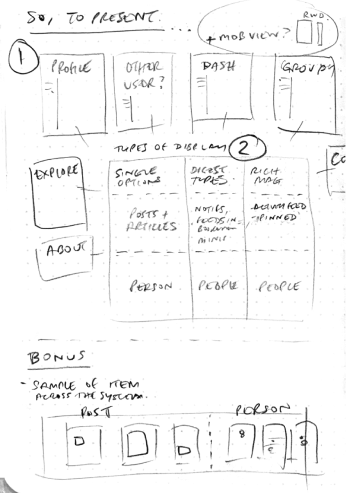 SO, TO PRESENT...
+ MOB VIEW?
RWD.
1
PROFILE
OTHER
USER?
DASH
GROUPS
TYPES OF DISPLAY
2
EXPLORE
SINGLE
OPTIONS
DIGEST
TYPES,
RICH
MAG
CO
POSTS +
ARTICLES
NOTIFS,
FEEDS IN
ABOUT
PERSON
PEOPLE
PEOPLE
BONUS
- SAMPLE OF ITEM
ACROSS THE SYSTEM...
POST
PERSON